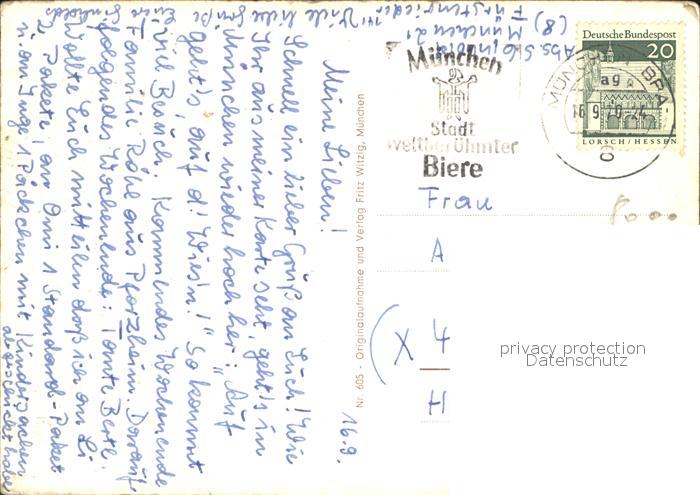 Abs. S.
(8) München 21
Fürstenrieder
Deutsche Bundespost
20
LORSCH/HESSEN
MÜNCHEN
ag
16.9.
München
Stadt
weltberühmter
Biere
Frau
A
(X 4
H
privacy protection
Datenschutz
Nr. 605 - Originalaufnahme und Verlag Fritz Witzig, München
16.9.
Meine Lieben!
Schnell ein lieber Gruß an Euch! Wie
Ihr aus meiner Karte seht, geht's in
München wieder hoch her: "Auf
geht's, auf d' Wies'n!" So kommt
viel Besuch. Kommendes Wochenende
Familie Röhl aus Pforzheim. Darauf
folgendes Wochenende: Tante Berte.
Wollte Euch mitteilen daß ich an Li
2 Pakete, an Omi 1 Standard-Paket
u. an Inge 1 Päckchen mit Kindersachen
abgeschickt habe
Viele liebe Grüße
Eure